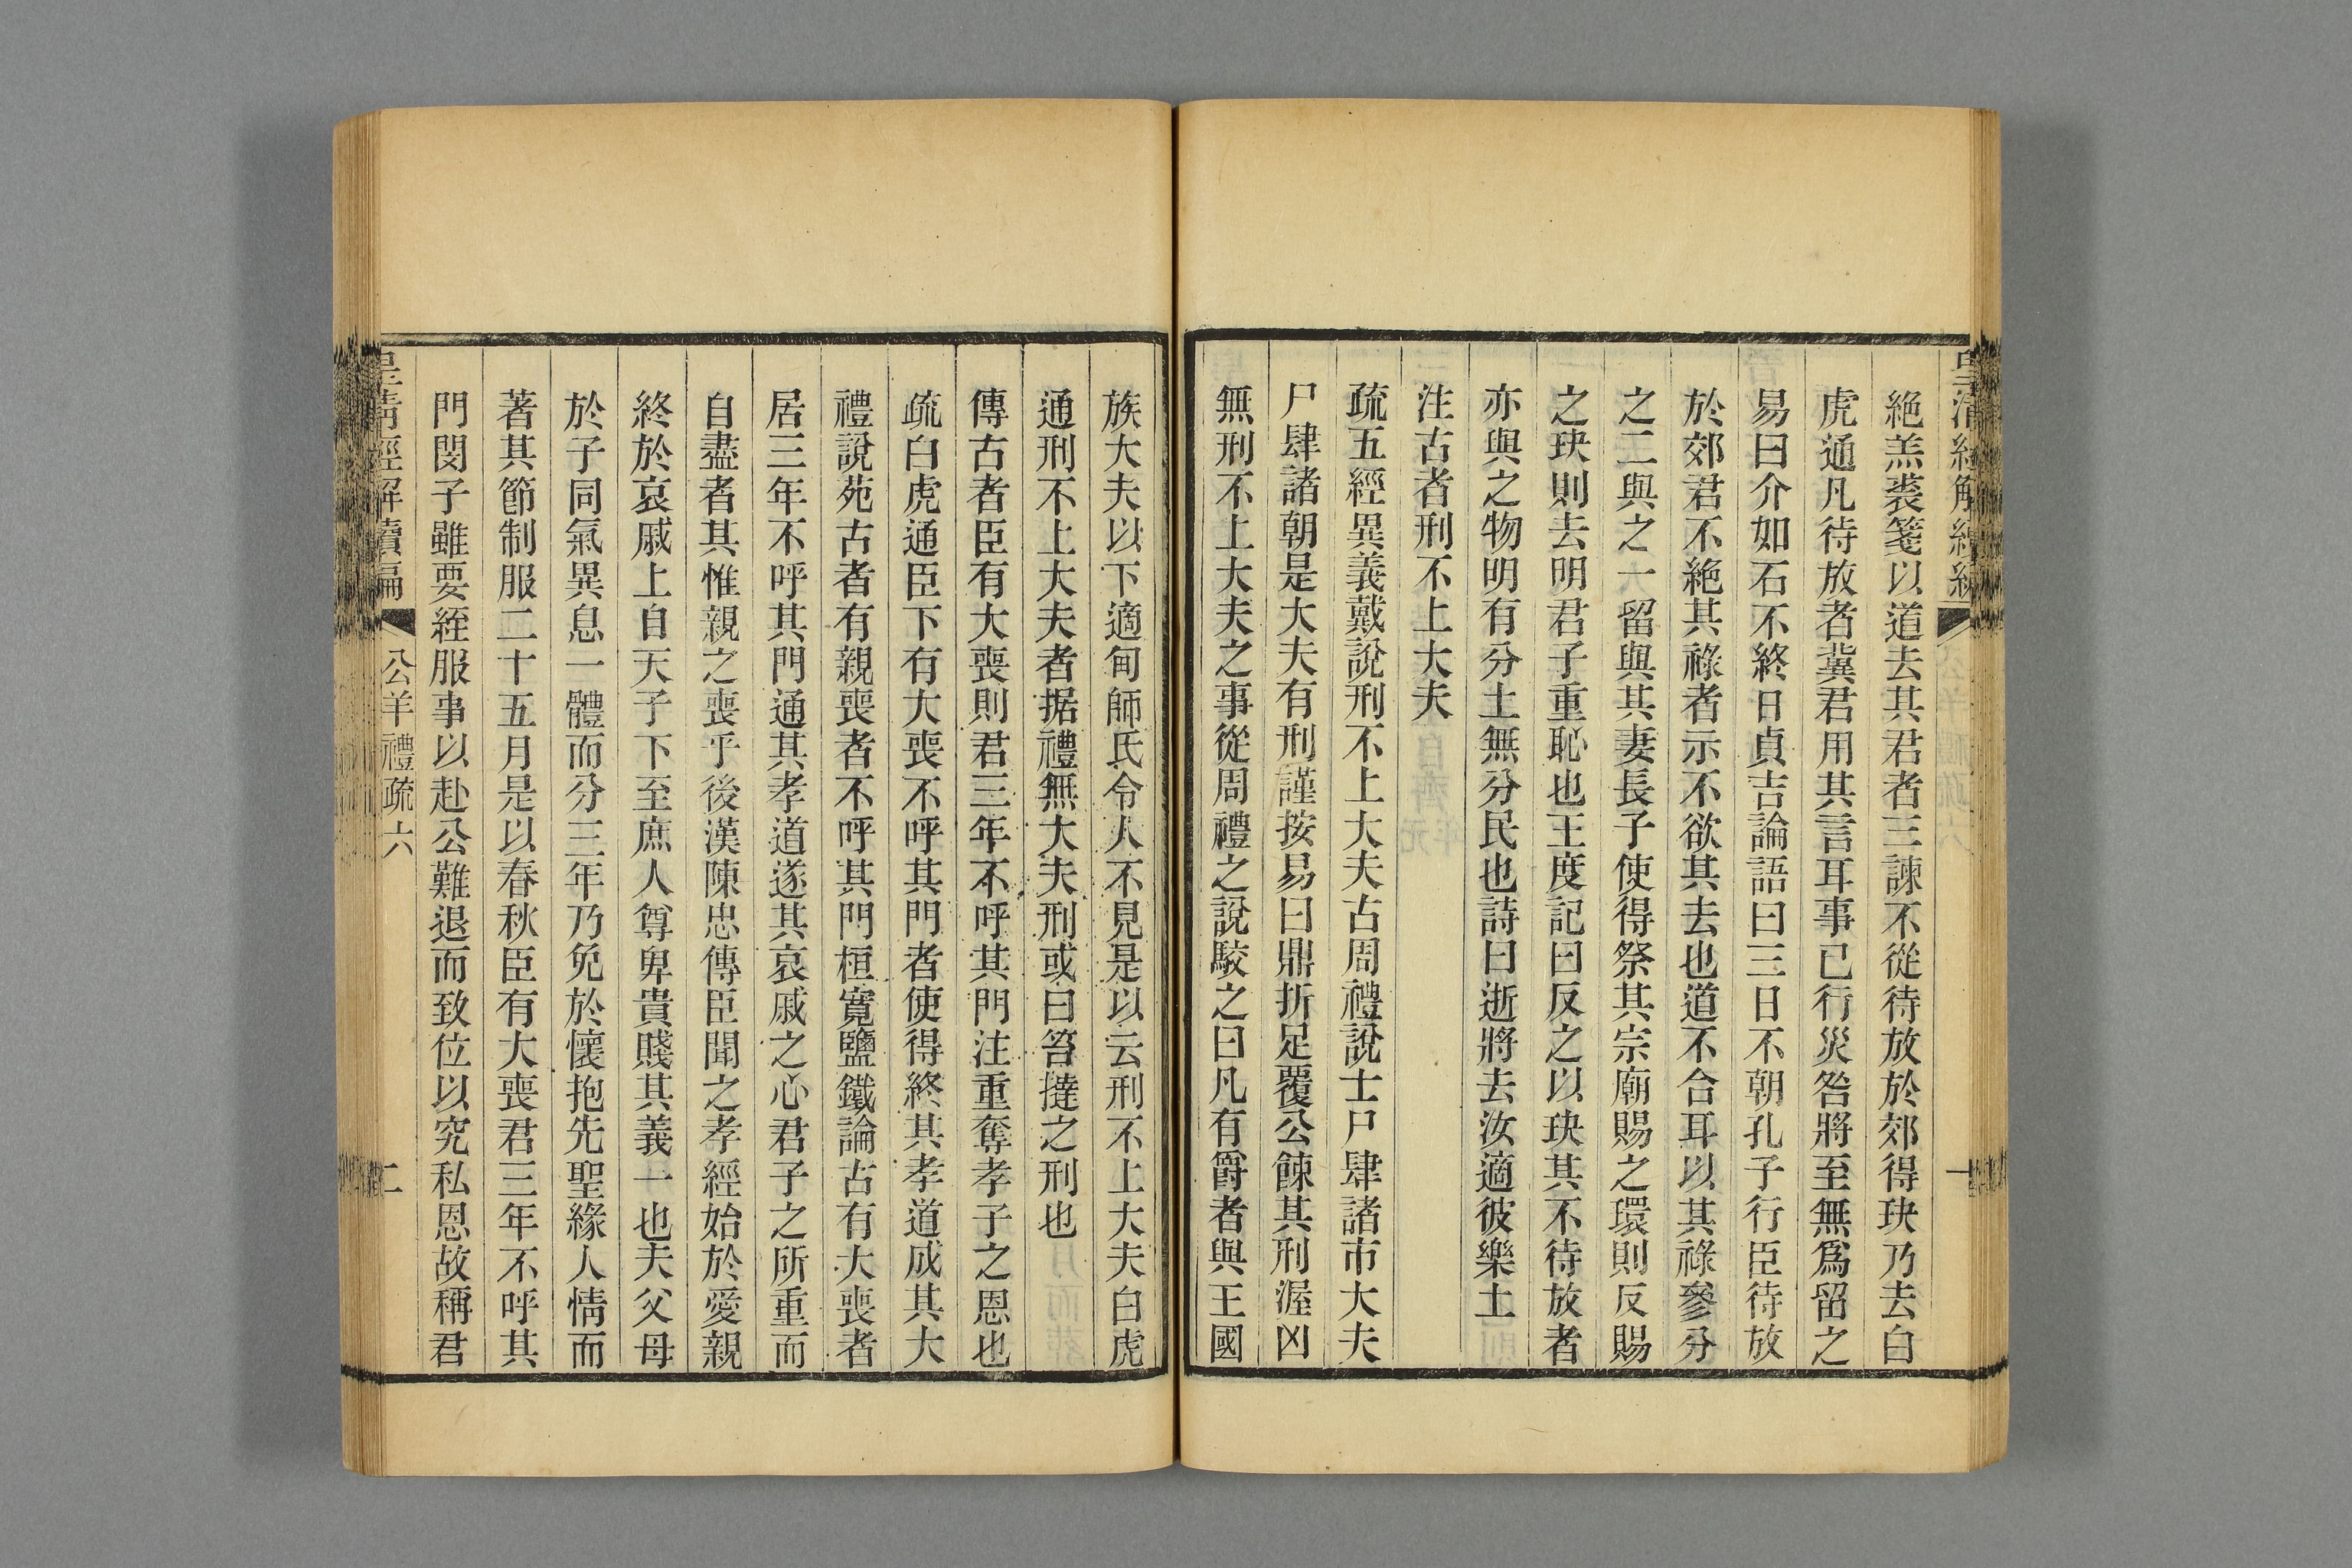 絶羔裘箋以道去其君者三諫不從待放於郊得玦乃去白
虎通凡待放者冀君用其言耳事已行災咎將至無爲留之
易曰介如石不終日貞吉論語曰三日不朝孔子行臣待放
於郊君不絶其祿者示不欲其去也道不合耳以其祿參分
之二與之一留與其妻長子使得祭其宗廟賜之環則反賜
之玦則去明君子重恥也王度記曰反之以玦其不待放者
亦與之物明有分土無分民也詩曰逝將去汝適彼樂土
注古者刑不上大夫
疏五經異義戴說刑不上大夫古周禮說士尸肆諸市大夫
尸肆諸朝是大夫有刑謹按易曰鼎折足覆公餗其刑渥凶
無刑不上大夫之事從周禮之說駮之曰凡有爵者與王國
族大夫以下適甸師氏令人不見是以云刑不上大夫白虎
通刑不上大夫者据禮無大夫刑或曰笞撻之刑也
傳古者臣有大喪則君三年不呼其門注重奪孝子之恩也
疏白虎通臣下有大喪不呼其門者使得終其孝道成其大
禮說苑古者有親喪者不呼其門桓寬鹽鐵論古有大喪者
居三年不呼其門通其孝道遂其哀戚之心君子之所重而
自盡者其惟親之喪乎後漢陳忠傳臣聞之孝經始於愛親
終於哀戚上自天子下至庶人尊卑貴賤其義一也夫父母
於子同氣異息一體而分三年乃免於懷抱先聖緣人情而
著其節制服二十五月是以春秋臣有大喪君三年不呼其
門閔子雖要絰服事以赴公難退而致位以究私恩故稱君
皇清經解續編 公羊禮疏六 二